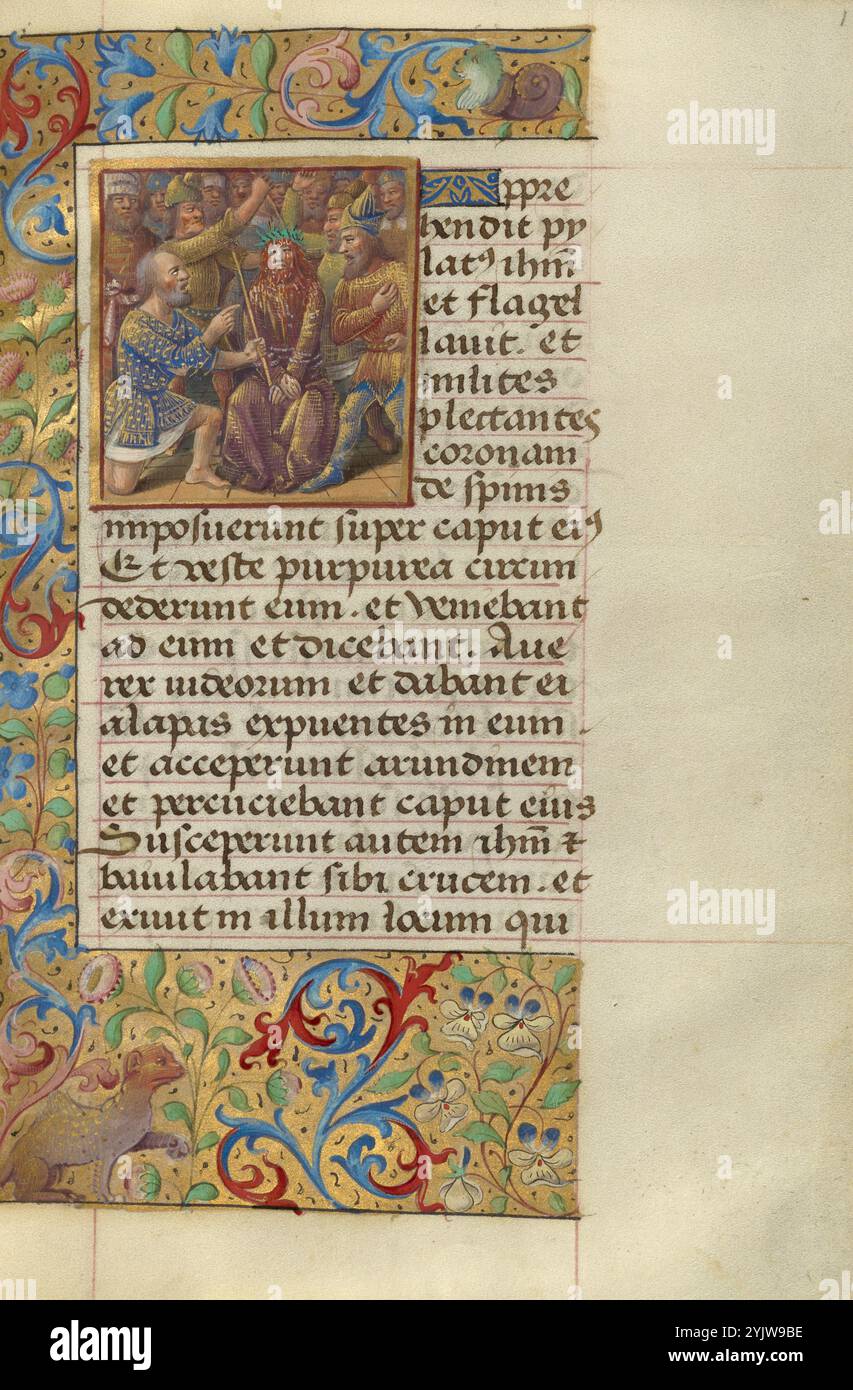 1
Appre
hendit py
latꝰ ihm̅
et flagel
lauit. et
milites
plectantes
coronam
de spinis
imposuerunt super caput eiꝰ
Et veste purpurea circun
dederunt eum. et veniebant
ad eum et dicebant. Aue
rex iudeorum et dabant ei
alapas expuentes in eum
et acceperunt arundinem
et percuciebant caput eius
Susceperunt autem ihm̅ ⁊
baiulabant sibi crucem. et
exiuit in illum locum qui
alamy
alamy
alamy
Image ID: 2YJW9BE
www.alamy.com